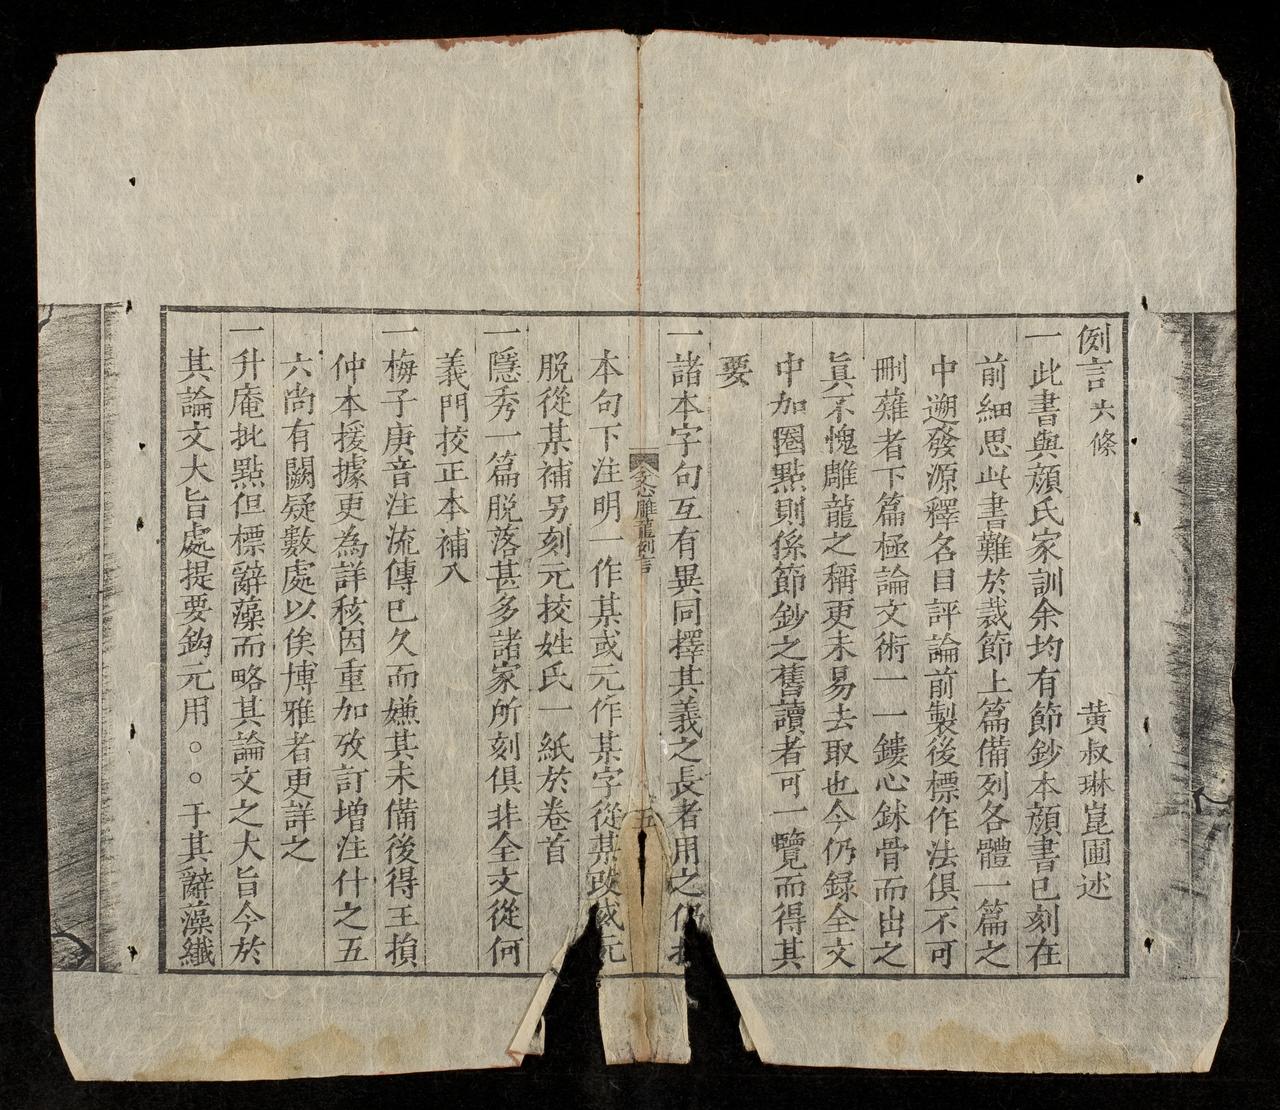 例言六條
黃叔琳崑圃述
一此書與顏氏家訓余均有節鈔本顏書已刻在
前細思此書難於裁節上篇備列各體一篇之
中遡發源釋名目評論前製後標作法俱不可
刪薙者下篇極論文術一一鏤心鉥骨而出之
眞不愧雕龍之稱更未易去取也今仍録全文
中加圈點則係節鈔之舊讀者可一覽而得其
要
一諸本字句互有異同擇其義之長者用之仍於
文心雕龍例言
五
本句下注明一作某或元作某字從某改或元
脫從某補另刻元挍姓氏一紙於卷首
一隱秀一篇脫落甚多諸家所刻俱非全文從何
義門挍正本補入
一梅子庚音注流傳已久而嫌其未備後得王損
仲本援據更為詳核因重加攷訂增注什之五
六尚有闕疑數處以俟博雅者更詳之
一升庵批點但標辭藻而略其論文之大旨今於
其論文大旨處提要鈎元用○○于其辭藻纖